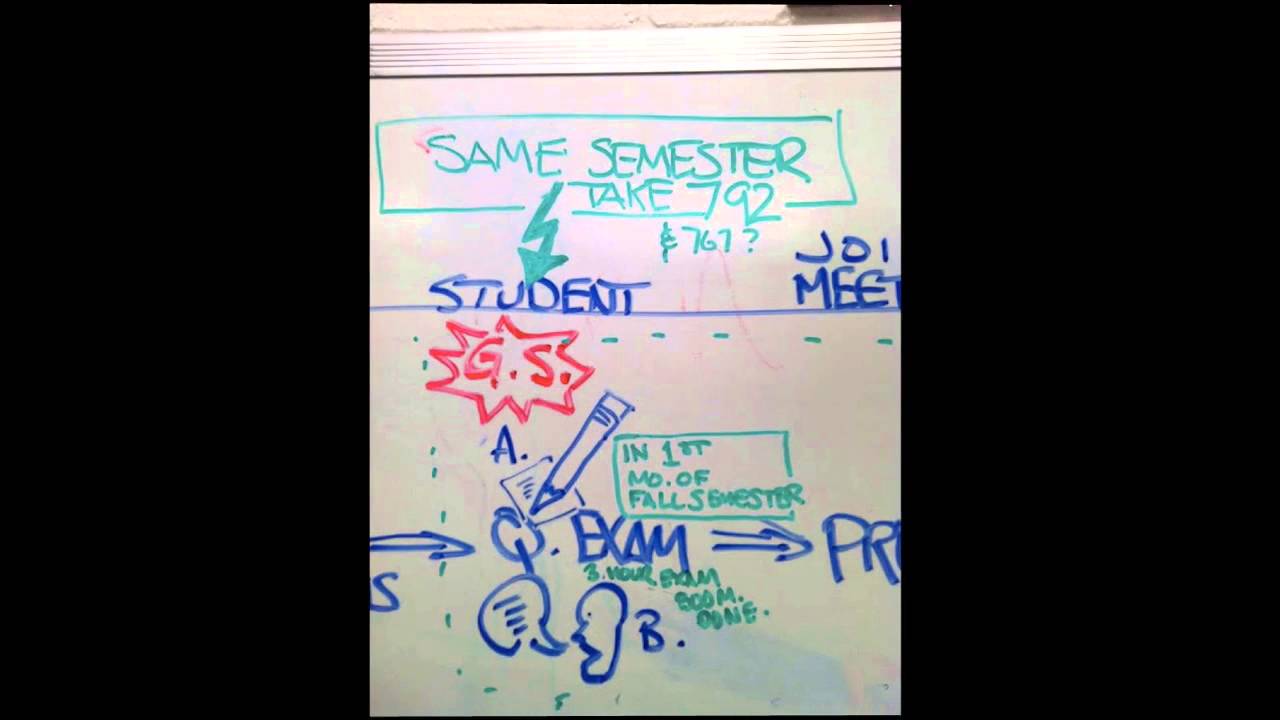 SAME SEMESTER
TAKE 792
& 767?
STUDENT
JOI
MEET
G.S.
A.
IN 1ST
MO. OF
FALL SEMESTER
Q. EXAM
PR
S
3. HOUR EXAM
BOOM.
DONE.
B.